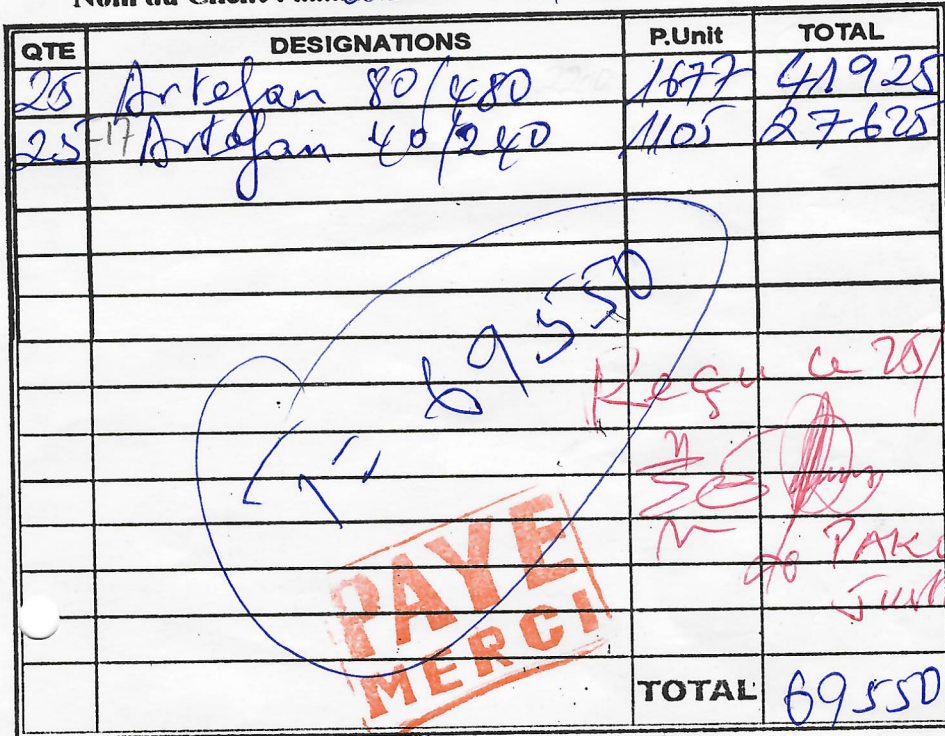 Nom du Client
QTE DESIGNATIONS P.Unit TOTAL
25 Artefan 80/480 1677 41925
25 -17 Artefan 40/240 1105 27625
69550
Reçu le 25/
PAYE
MERCI
TOTAL 69550